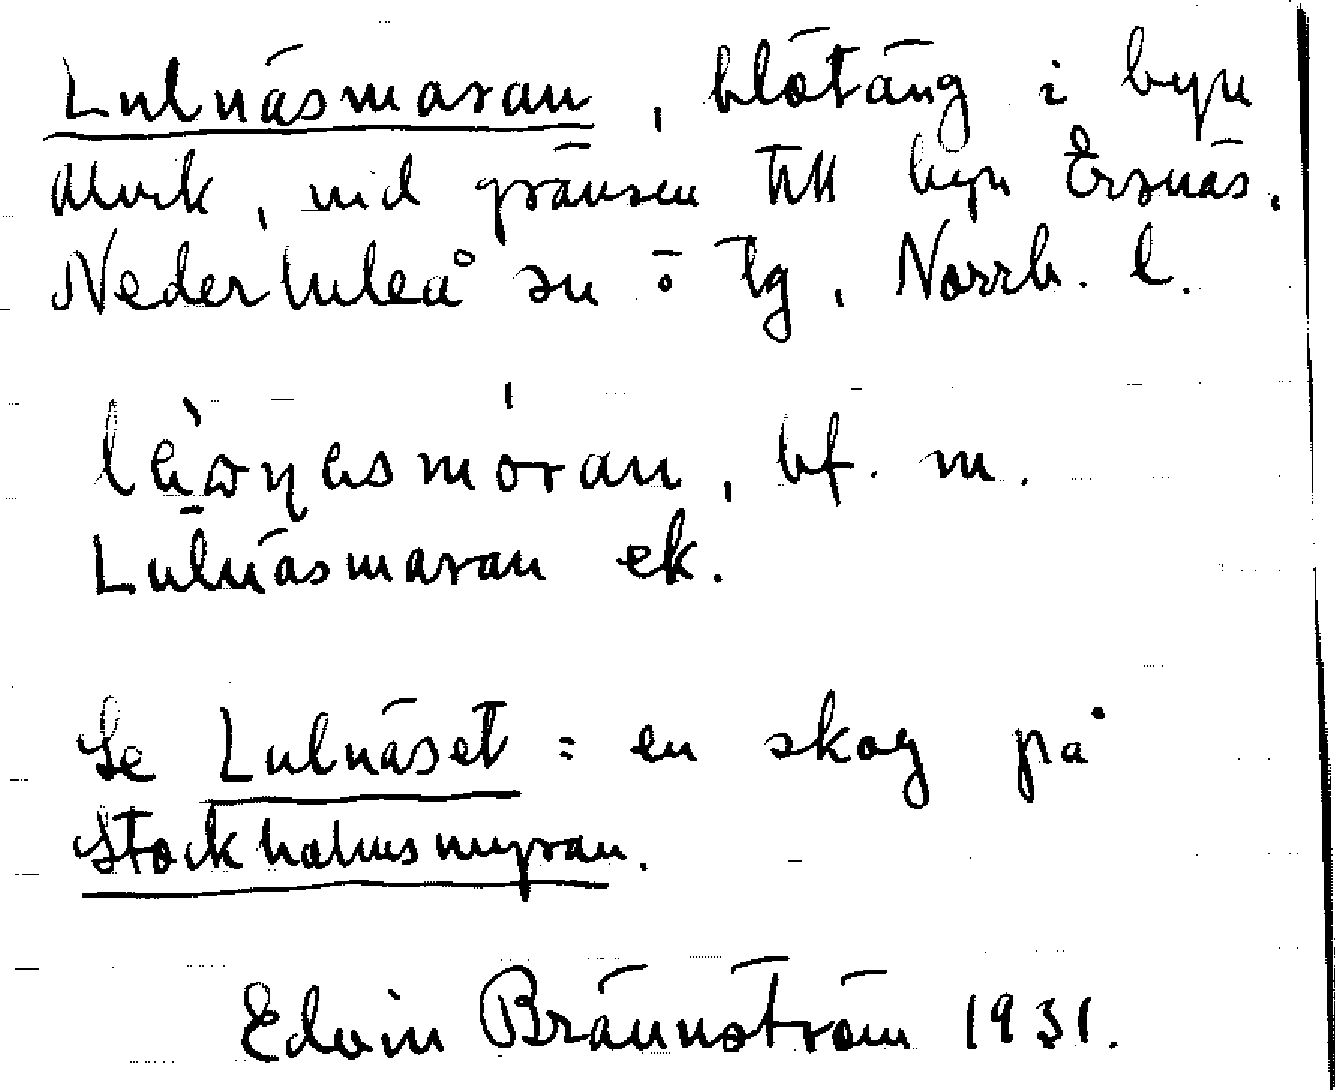 Lulnäsmaran, blötäng i byn
Alvik, vid gränsen till byn Ersnäs,
Nederluleå sn o tg, Norrb. l.
bf. m.
Lulnäsmaran ek.
Se Lulnäset = en skog på
Stockholmsmyran.
Edvin Brännström 1931.